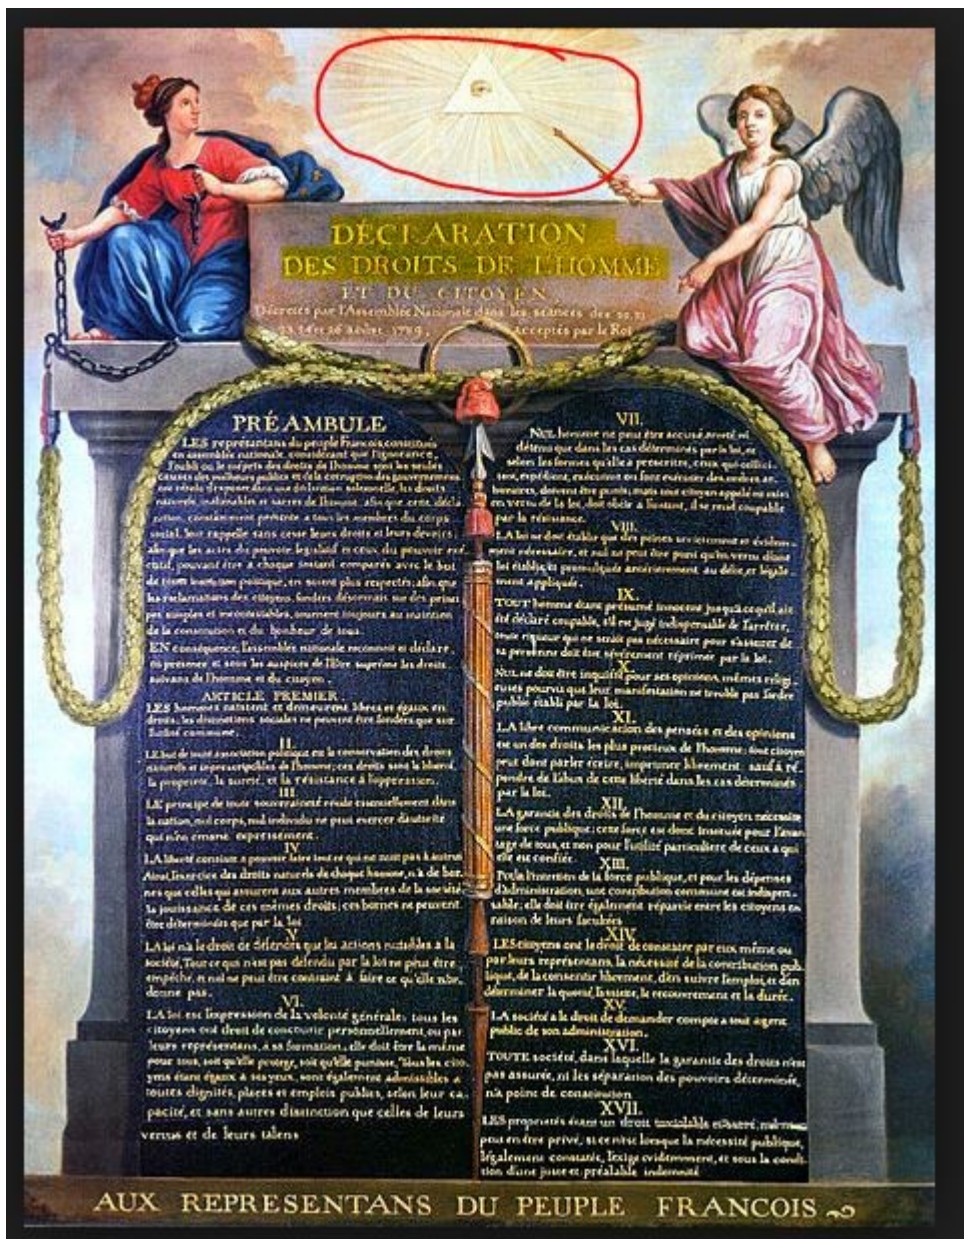 DÉCLARATION
DES DROITS DE L'HOMME
ET DU CITOYEN
Décretés par l'Assemblée Nationale dans les séances des 20, 21
23, 24 et 26 Août 1789, acceptés par le Roi
PRÉAMBULE
LES représentans du peuple François constitués
en assemblée nationale, considérant que l'ignorance,
l'oubli ou le mépris des droits de l'homme sont les seules
causes des malheurs publics et de la corruption des gouvernemens
ont résolu d'exposer dans une déclaration solemnelle, les droits
naturels, inaliénables et sacrés de l'homme; afin que cette décla
ration, constamment présente a tous les membres du corps
social, leur rappelle sans cesse leurs droits et leurs devoirs
afin que les actes du pouvoir législatif et ceux du pouvoir exé
cutif, pouvant être a chaque instant comparés avec le but
de toute institution politique, en soient plus respectés; afin que
les réclamations des citoyens, fondées désormais sur des princi
pes simples et incontestables, tournent toujours au maintien
de la constitution et du bonheur de tous.
EN conséquence, l'assemblée nationale reconnoit et déclare,
en présence et sous les auspices de l'Etre suprême les droits
suivans de l'homme et du citoyen.
ARTICLE PREMIER
LES hommes naissent et demeurent libres et égaux en
droits; les distinctions sociales ne peuvent être fondées que sur
l'utilité commune.
II.
LE but de toute association politique est la conservation des droits
naturels et imprescriptibles de l'homme; ces droits sont la liberté,
la propriété, la sureté, et la résistance à l'oppression.
III.
LE principe de toute souveraineté réside essentiellement dans
la nation, nul corps, nul individu ne peut exercer d'autorité
qui n'en émane expressément.
IV.
LA liberté consiste a pouvoir faire tout ce qui ne nuit pas à autrui
Ainsi, l'exercice des droits naturels de chaque homme, n'a de bor
nes que celles qui assurent aux autres membres de la société
la jouissance de ces mêmes droits; ces bornes ne peuvent
être déterminées que par la loi
V.
LA loi n'a le droit de défendre que les actions nuisibles a la
société. Tout ce qui n'est pas défendu par la loi ne peut être
empêché, et nul ne peut être contraint à faire ce qu'elle n'or
donne pas.
VI.
LA loi est l'expression de la volonté générale; tous les
citoyens ont droit de concourir personnellement, ou par
leurs représentans, à sa formation; elle doit être la même
pour tous, soit qu'elle protege, soit qu'elle punisse. Tous les cito
yens étant égaux à ses yeux, sont également admissibles a
toutes dignités, places et emplois publics, selon leur ca
pacité, et sans autres distinction que celles de leurs
vertus et de leurs talens
VII.
NUL homme ne peut être accusé, arreté ni
détenu que dans les cas déterminés par la loi, et
selon les formes qu'elle a prescrites, ceux qui sollici-
tent, expédient, exécutent ou font exécuter des ordres ar-
bitraires, doivent être punis; mais tout citoyen appelé ou saisi
en vertu de la loi, doit obéir a l'instant, il se rend coupable
par la résistance.
VIII.
LA loi ne doit établir que des peines strictement et évidem-
ment nécessaires, et nul ne peut être puni qu'en vertu d'une
loi établie et promulguée antérieurement au délit, et légale
ment appliquée.
IX.
TOUT homme étant présumé innocent jusqu'a ce qu'il ait
été déclaré coupable, s'il est jugé indispensable de l'arrêter,
toute rigueur qui ne serait pas nécessaire pour s'assurer de
sa personne doit être sévèrement réprimée par la loi.
X.
NUL ne doit être inquiété pour ses opinions, mêmes religi
euses pourvu que leur manifestation ne trouble pas l'ordre
public établi par la loi.
XI.
LA libre communication des pensées et des opinions
est un des droits les plus precieux de l'homme; tout citoyen
peut dont parler écrire, imprimer librement: sauf à ré-
pondre de l'abus de cette liberté dans les cas déterminés
par la loi.
XII.
LA garantie des droits de l'homme et du citoyen nécessite
une force publique; cette force est donc instituée pour l'avan
tage de tous, et non pour l'utilité particuliere de ceux a qui
elle est confiée.
XIII.
Pour l'entretien de la force publique, et pour les dépenses
d'administration, une contribution commune est indispen-
sable; elle doit être également répartie entre les citoyens en
raison de leurs facultées
XIV.
LES citoyens ont le droit de constater par eux même ou
par leurs représentans, la nécessité de la contribution pub
lique, de la consentir librement, d'en suivre l'emploi, et d'en
déterminer la quotité, l'assiette, le recouvrement et la durée.
XV.
LA société a le droit de demander compte a tout agent
public de son administration.
XVI.
TOUTE société, dans laquelle la garantie des droits n'est
pas assurée, ni les séparation des pouvoirs déterminée,
n'a point de constitution
XVII.
LES propriétés étant un droit inviolable et sacré, nul ne
peut en être privé, si ce n'est lorsque la nécessité publique,
légalement constatée, l'exige evidemment, et sous la condi-
tion d'une juste et préalable indemnité
AUX REPRESENTANS DU PEUPLE FRANCOIS